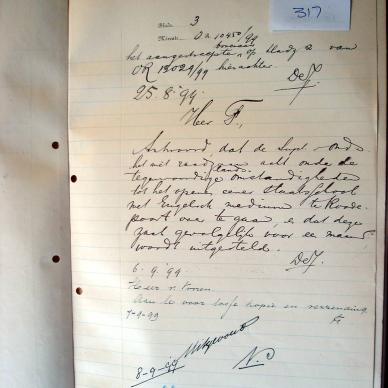 317
Bladz. 3
Minute OR 10450/99
het aangestreepte op bladz 2 van
OR 13029/99 hierachter.
DeJ.
25.8.'99.
Heer F,
Antwoord, dat de Supt. onds.
het niet raadzaam acht onder de
tegenwoordige omstandigheden
tot het openen eener Staatsschool
met Engelsch medium te Roode-
poort over te gaan, en dat deze
zaak gevolgelijk voor een maand
wordt uitgesteld.
DeJ.
6.9.'99.
Heer v.
voor kopie en verzending
7-9-99
8-9-99